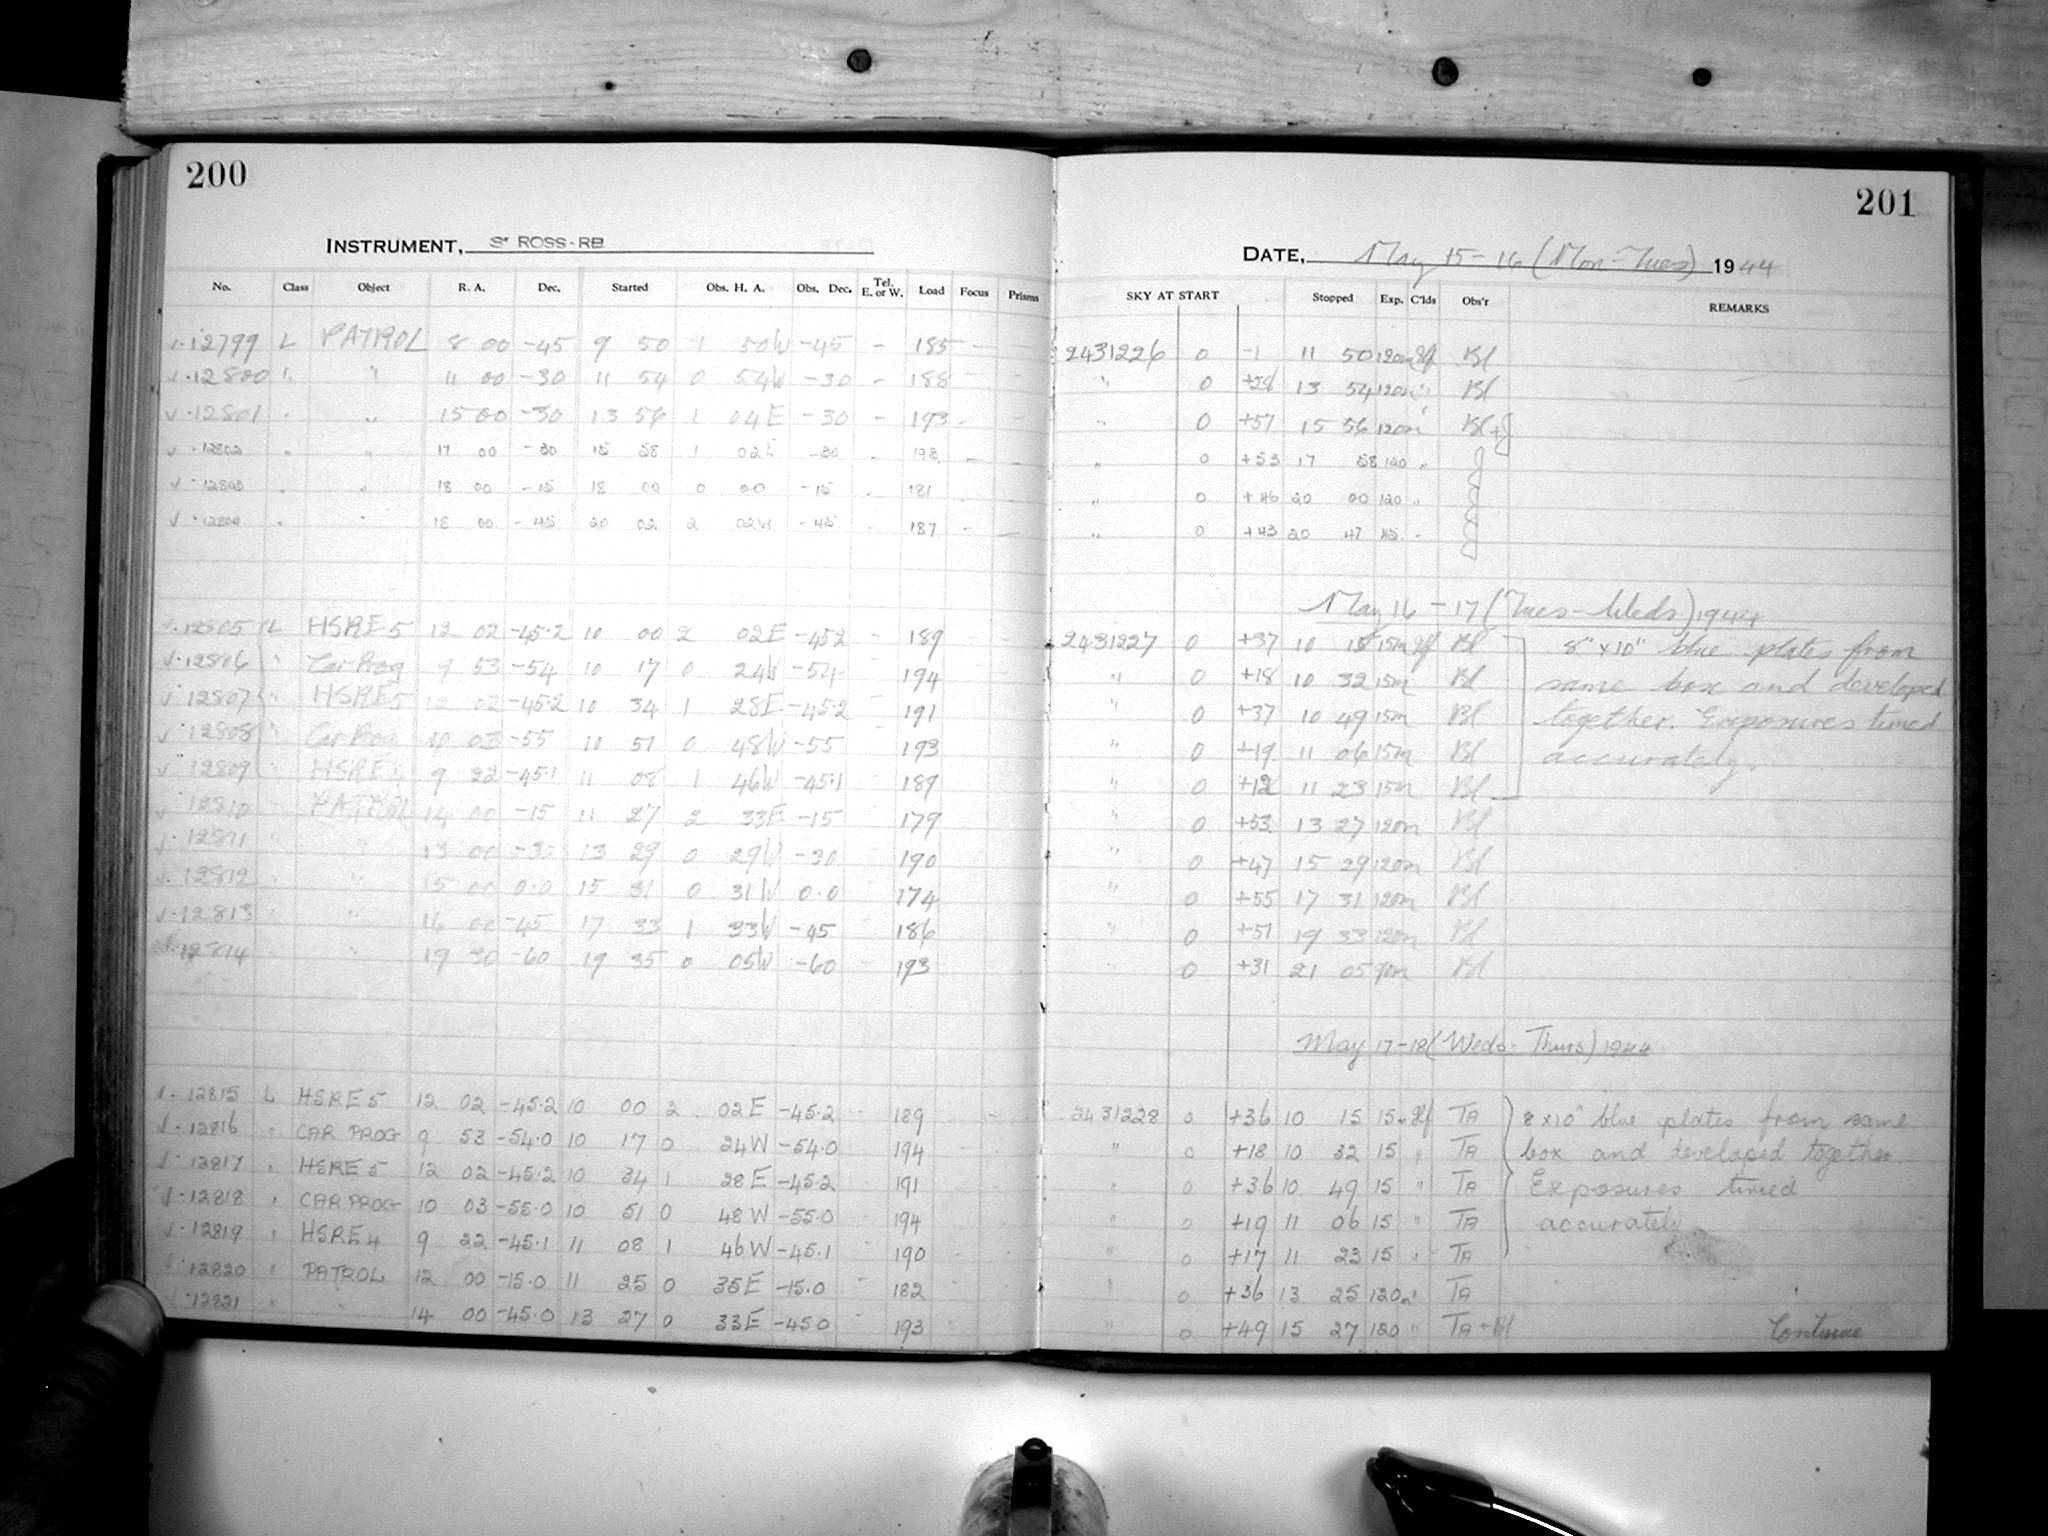 200
INSTRUMENT, 3" ROSS-RB
No. Class Object R. A. Dec. Started Obs. H. A. Obs. Dec. Tel. E. or W. Load Focus Prisms
√ · 12799 L PATROL 8 00 -45 9 50 1 50W -45 - 185 - -
√ · 12800 L " 11 00 -30 11 54 0 54W -30 - 188 - -
√ · 12801 " " 15 00 -30 13 56 1 04E -30 - 193 - -
√ · 12802 " " 17 00 -30 15 58 1 02E -30 - 193 - -
√ · 12803 " " 18 00 -15 18 00 0 00 -15 - 181 - -
√ · 12804 " " 18 00 -45 20 02 2 02W -45 - 187 - -
√ · 12805 L HSRE 5 12 02 -45.2 10 00 2 02E -45.2 - 189
√ · 12806 " Car Prog 9 53 -54 10 17 0 24W -54 - 194
√ · 12807 " HSRE 5 12 02 -45.2 10 34 1 28E -45.2 - 191
√ · 12808 " Car Prog 10 03 -55 10 51 0 48W -55 193
√ · 12809 " HSRE 4 9 22 -45.1 11 08 1 46W -45.1 189
√ · 12810 PATROL 14 00 -15 11 27 2 33E -15 179
√ · 12811 " 13 00 -30 13 29 0 29W -30 190
√ · 12812 " 15 00 0.0 15 31 0 31W 0.0 174
√ · 12813 " 16 00 -45 17 33 1 33W -45 186
· 12814 " 19 30 -60 19 35 0 05W -60 193
√ · 12815 L HSRE 5 12 02 -45.2 10 00 2 02E -45.2 189
√ · 12816 " CAR PROG 9 53 -54.0 10 17 0 24W -54.0 194
√ · 12817 " HSRE 5 12 02 -45.2 10 34 1 28E -45.2 191
√ · 12818 " CAR PROG 10 03 -55.0 10 51 0 48W -55.0 194
√ · 12819 " HSRE 4 9 22 -45.1 11 08 1 46W -45.1 190
√ · 12820 " PATROL 12 00 -15.0 11 25 0 35E -15.0 182
√ · 12821 " " 14 00 -45.0 13 27 0 33E -45.0 193
201
DATE, May 15-16 (Mon-Tues) 1944
SKY AT START Stopped Exp. C'lds Obs'r REMARKS
2431226 0 -1 11 50 120m Bl
" 0 +28 13 54 120m " Bl
" 0 +57 15 56 120m " Bl + J
" 0 +53 17 58 120 " J
" 0 +46 20 00 120 " J
" 0 +43 20 47 45 " J
May 16-17 (Tues-Weds) 1944
2431227 0 +37 10 15 15m Bl 8" x 10" blue plates from
" 0 +18 10 32 15m Bl same box and developed
" 0 +37 10 49 15m Bl together. Exposures timed
" 0 +19 11 06 15m Bl accurately.
" 0 +12 11 23 15m Bl
" 0 +53 13 27 120m Bl
" 0 +47 15 29 120m Bl
" 0 +55 17 31 120m Bl
" 0 +51 19 33 120m Bl
0 +31 21 05 90m Bl
May 17-18 (Weds-Thurs) 1944
2431228 0 +36 10 15 15m TA 8 x 10" blue plates from same
" 0 +18 10 32 15 " TA box and developed together
" 0 +36 10 49 15 " TA Exposures timed
" 0 +19 11 06 15 " TA accurately
" 0 +17 11 23 15 " TA
" 0 +36 13 25 120m TA
" 0 +49 15 27 120 " TA + Bl Continue